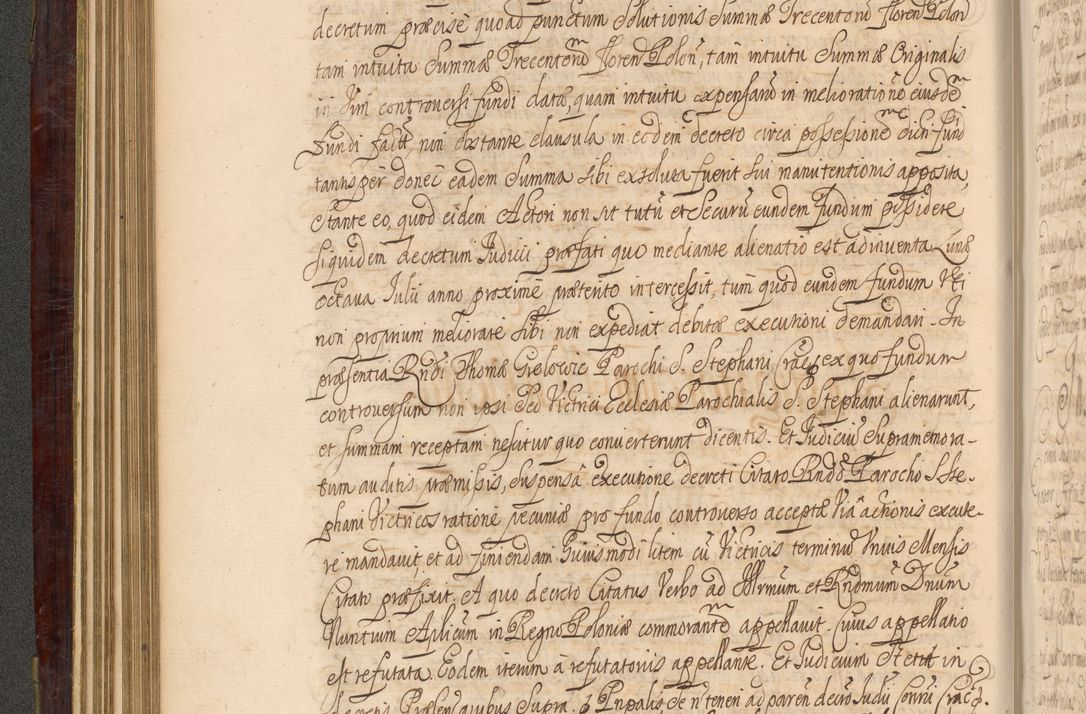 decretum præcisè quoad punctum Solutionis Summæ Trecentorũ Floren Polon
tam intuitu Summæ Trecentorũ Floren Polon, tam intuitu Summæ Originalis
in Vim controversi fundi datæ, quam intuitu expensarũ in melioratione eiusdẽ
Fundi fact, non obstante clausula in eodem decreto circa possessionẽ dicti fundi
tantisper donec eadem Summa sibi exsoluta fuerit sui manutentionis apposita,
Stante eo, quod eidem Actori non sit tutũ et Securũ eundem fundum possidere
Siquidem decretum Iudicii præfati quo mediante alienatio est adinventa
octava Iulii anno proximè præterito intercessit, tùm quod eundem fundum Uti
non proprium meliorare sibi non expediat debitæ executioni demandari. In
præsentia Rndi Thomæ Grelowic Parochi S. Stephani Crac, ex quo fundum
controversum non ipsi sed Victrici Ecclesiæ Parochialis S. Stephani alienarunt,
et summam receptam nescitur quo converterunt dicentis. Et Iudiciũ Supramemora-
tum auditis præmissis, suspensâ executione decreti Citato Rndo Parocho S. Ste-
phani Victricos ratione pecuniæ pro fundo controverso acceptæ Viâ actionis excute-
re mandavit, et ad finiendam huiusmodi litem cũ Victricis terminũ Unius Mensis
Citato præfixit. A quo decreto Citatus Verbo ad Illrmum et Rndmum Dnum
Nuntium Aplicum in Regno Poloniæ commorantẽ appellavit. Cuius appellatio
est refutata. Eodem iterum à refutatoriis appellante. Et Iudicium Stetit in